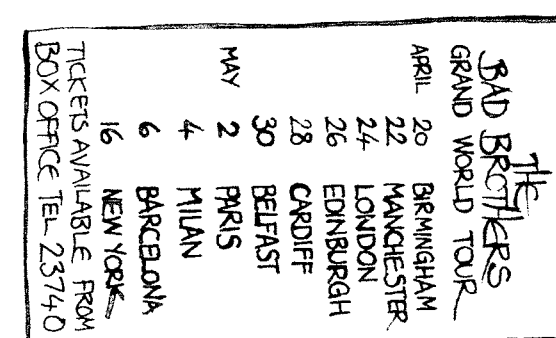 THE
BAD BROTHERS
GRAND WORLD TOUR
APRIL 20 BIRMINGHAM
22 MANCHESTER
24 LONDON
26 EDINBURGH
28 CARDIFF
30 BELFAST
MAY 2 PARIS
4 MILAN
6 BARCELONA
16 NEW YORK
TICKETS AVAILABLE FROM
BOX OFFICE TEL 23740